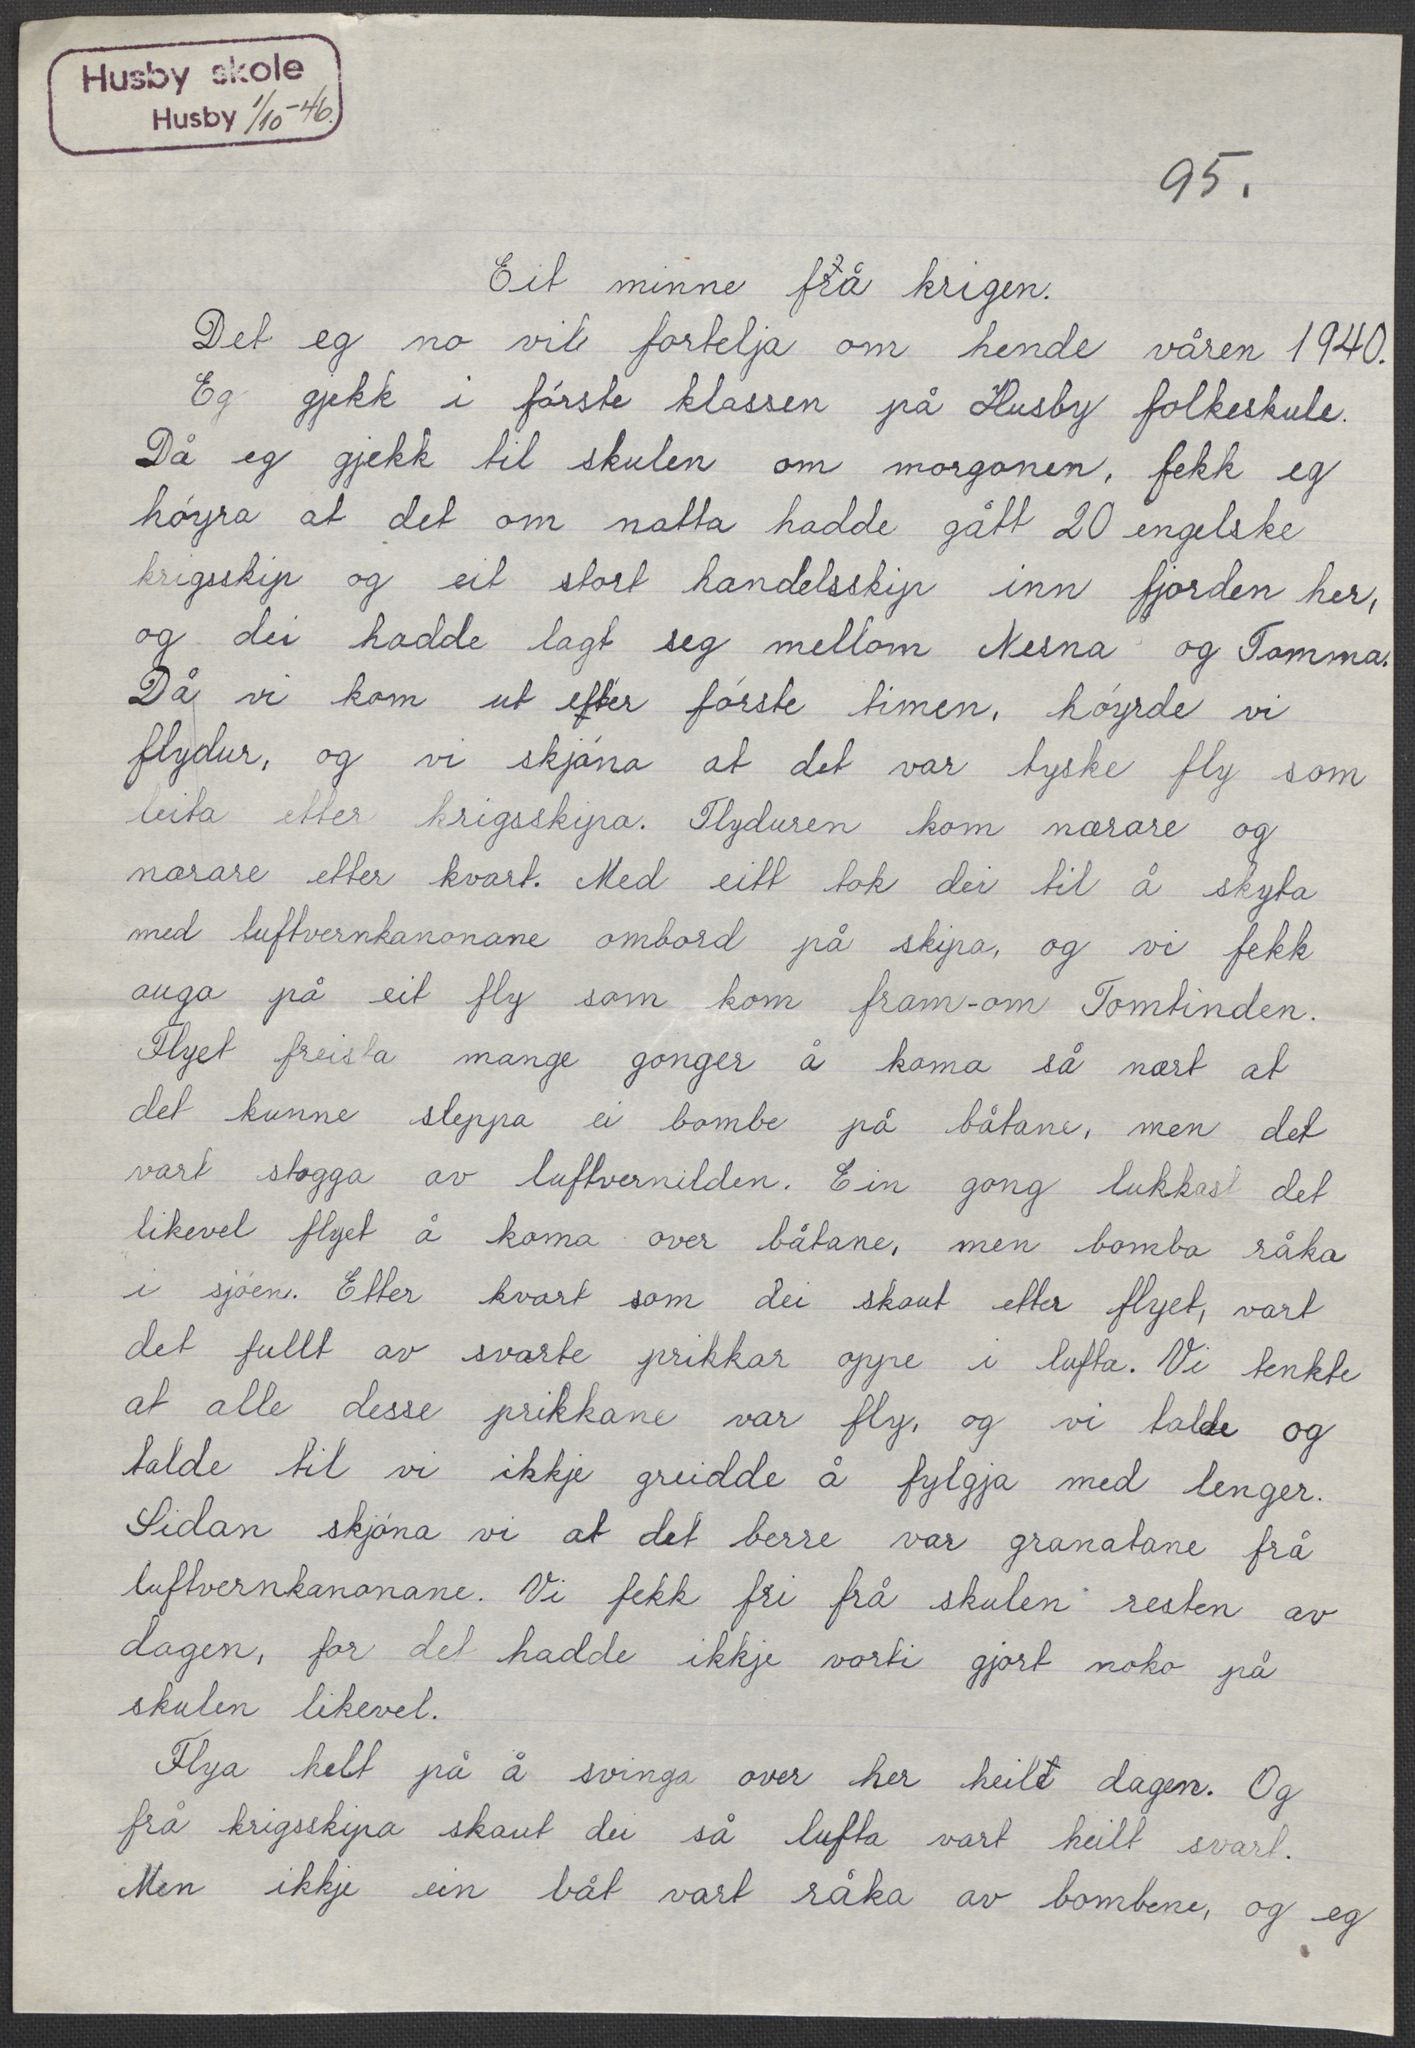 Husby skole
Husby 1/10-46.
95.
Eit minne frå krigen.
Det eg no vil fortelja om hende våren 1940.
Eg gjekk i fórste klassen på Husby folkeskule.
Då eg gjekk til skulen om morgonen, fekk eg
hóyra at det om natta hadde gått 20 engelske
krigsskip og eit stort handelsskip inn fjorden her,
og dei hadde lagt seg mellom Nesna og Tomma.
Då vi kom ut efter fórste timen, hóyrde vi
flydur, og vi skjóna at det var tyske fly som
leita etter krigsskipa. Flyduren kom nærare og
nærare etter kvart. Med eitt tok dei til å skyta
med luftvernkanonane ombord på skipa, og vi fekk
auga på eit fly som kom fram-om Tomtinden.
Flyet freista mange gonger å koma så nært at
det kunne sleppa ei bombe på båtane, men det
vart stogga av luftvernilden. Ein gong lukkast det
likevel flyet å koma over båtane, men bomba råka
i sjóen. Etter kvart som dei skaut etter flyet, vart
det fullt av svarte prikkar oppe i lufta. Vi tenkte
at alle desse prikkane var fly, og vi talde og
talde til vi ikkje greidde å fylgja med lenger.
Sidan skjóna vi at det berre var granatane frå
luftvernkanonane. Vi fekk fri frå skulen resten av
dagen, for det hadde ikkje vorti gjort noko på
skulen likevel.
Flya helt på å svinga over her heile dagen. Og
frå krigsskipa skaut dei så lufta vart heilt svart.
Men ikkje ein båt vart råka av bombene, og eg